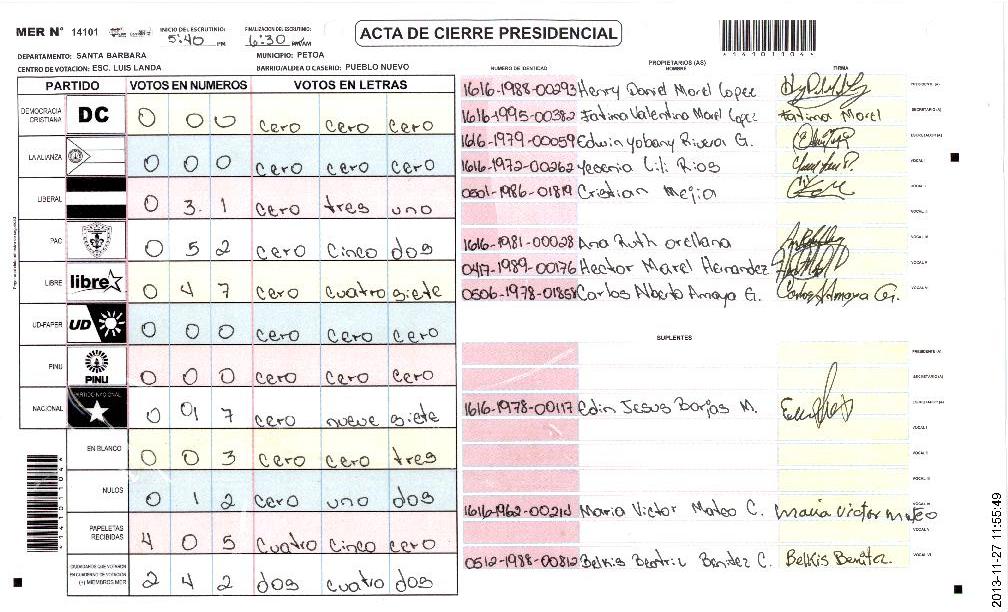 MER N° 14101
INICIO DEL ESCRUTINIO: 5:40 PM
FINALIZACION DEL ESCRUTINIO: 6:30
ACTA DE CIERRE PRESIDENCIAL
DEPARTAMENTO: SANTA BARBARA
MUNICIPIO: PETOA
CENTRO DE VOTACION: ESC. LUIS LANDA
BARRIO/ALDEA O CASERIO: PUEBLO NUEVO
PARTIDO VOTOS EN NUMEROS VOTOS EN LETRAS
DEMOCRACIA CRISTIANA DC 0 0 0 cero cero cero
LA ALIANZA 0 0 0 cero cero cero
LIBERAL 0 3 1 cero tres uno
PAC 0 5 2 cero cinco dos
LIBRE libre 0 4 7 cero cuatro siete
UD-FAPER UD 0 0 0 cero cero cero
PINU PINU 0 0 0 cero cero cero
NACIONAL 0 9 7 cero nueve siete
EN BLANCO 0 0 3 cero cero tres
NULOS 0 1 2 cero uno dos
PAPELETAS RECIBIDAS 4 0 5 cuatro cinco cero
CIUDADANOS QUE VOTARON EN CUADERNO DE VOTACION (+) MIEMBROS MER 2 4 2 dos cuatro dos
PROPIETARIOS (AS)
NUMERO DE IDENTIDAD NOMBRE FIRMA
1616-1988-00293 Henry Daniel Morel Lopez PRESIDENTE (A)
1616-1995-00382 Fatima Valentina Morel Lopez Fatima Morel SECRETARIO (A)
1616-1979-00059 Edwin yobany Rivera G. ESCRUTADOR (A)
1616-1972-00262 Yecenia Lili Rios VOCAL I
0501-1986-01819 Cristian Mejia VOCAL II
VOCAL III
1616-1981-00028 Ana Ruth orellana VOCAL IV
0417-1989-00176 Hector Marel Hernandez VOCAL V
0506-1978-01858 Carlos Alberto Amaya G. Carlos A Amaya G. VOCAL VI
SUPLENTES
PRESIDENTE (A)
SECRETARIO (A)
1616-1978-00117 Edin Jesus Borjas M. ESCRUTADOR (A)
VOCAL I
VOCAL II
VOCAL III
1616-1962-00214 Maria Victor Mateo C. maria victor mateo VOCAL IV
VOCAL V
0512-1988-00812 Belkis Beatriz Benitez C. Belkis Benitez. VOCAL VI
4141011044
2013-11-27 11:55:49